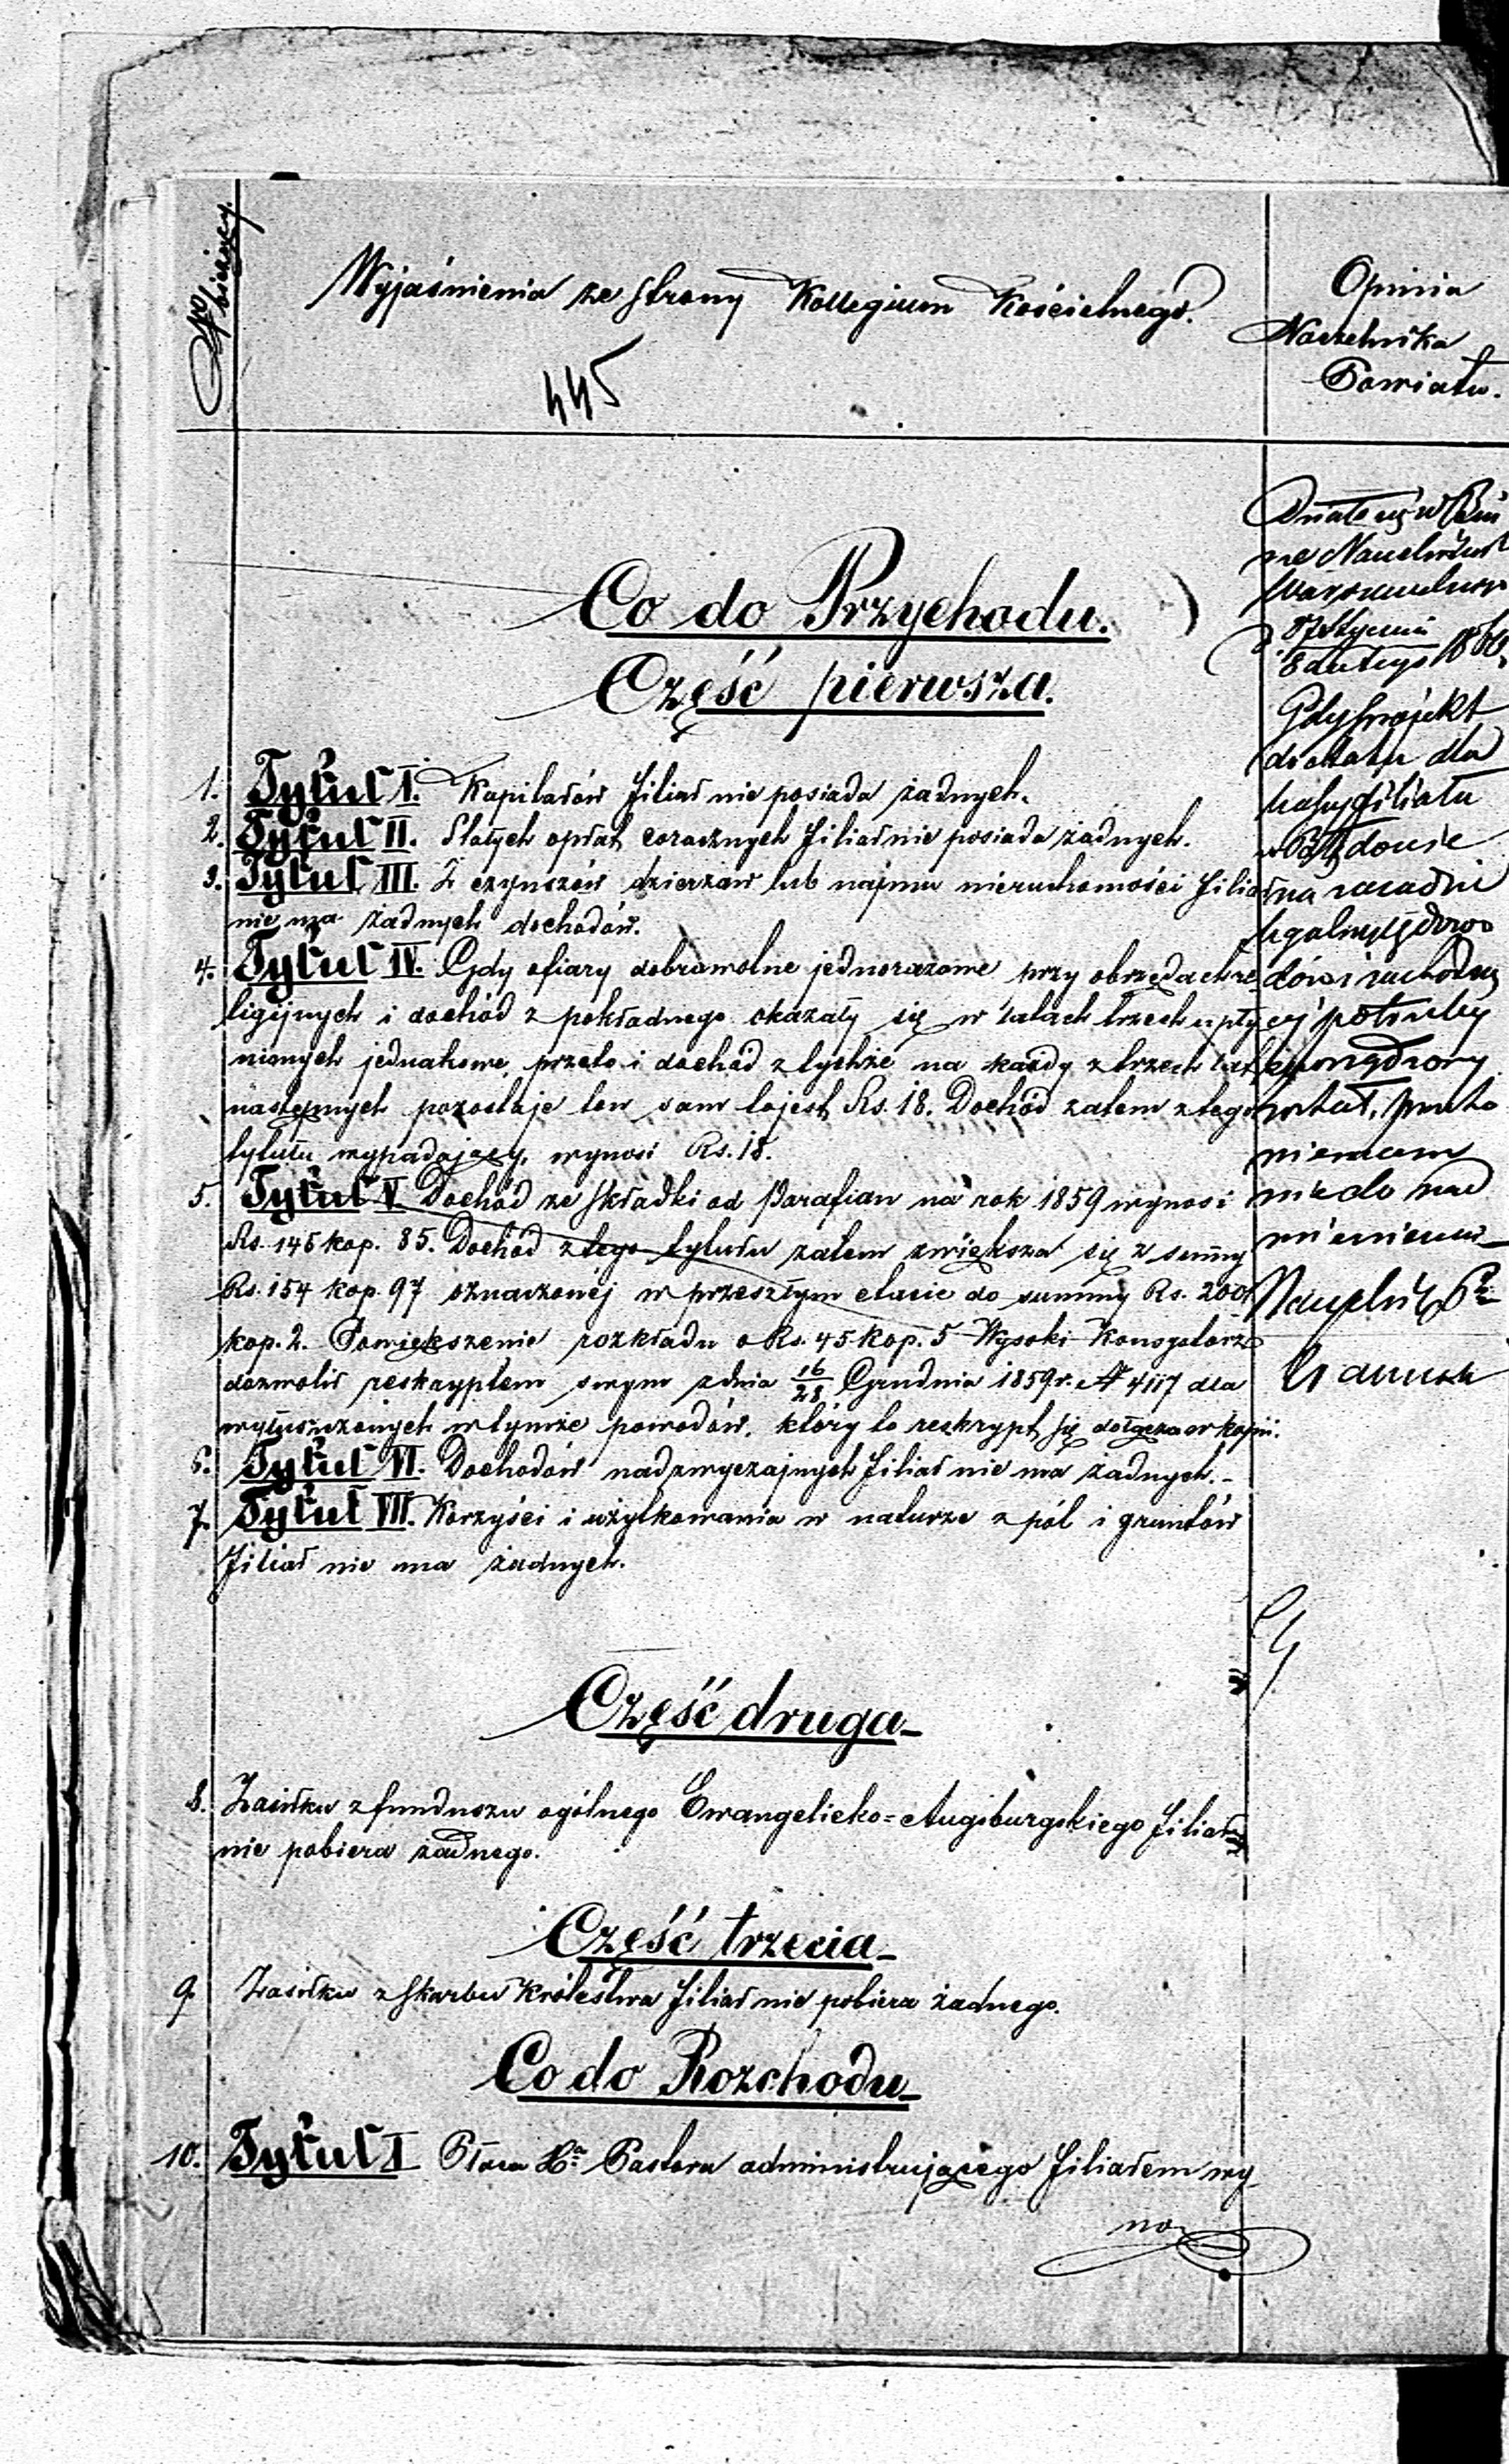 No bieżący.
Wyjaśnienia ze strony Kollegium Kościelnego.
445
Opinia
Naczelnika
Powiatu.
Co do Przychodu.
Część pierwsza.
1. Tytuł I. Kapitałów filiał nie posiada żadnych.
2. Tytuł II. Stałych opłat corocznych filiał nie posiada żadnych.
3. Tytuł III. Z czynszów dzierżaw lub najmu nieruchomości filiał
nie ma żadnych dochodów.
4. Tytuł IV. Gdy ofiary dobrowolne jednorazowe przy obrzędach re-
ligijnych i dochód z pokładnego okazały się w latach trzech upły-
nionych jednakowe, przeto i dochód z tychże na każdy z trzech lat
następnych pozostaje ten sam to jest Rs. 18. Dochód zatem z tego
tytułu wypadający, wynosi Rs. 18.
5. Tytuł V. Dochód ze składki od Parafian na rok 1859 wynosi
Rs. 145 kop. 85. Dochód z tego tytułu zatem zwiększa się z summy
Rs. 154 kop. 97 oznaczonéj w przeszłym etacie do summy Rs. 200
kop. 2. Powiększenie rozkładu o Rs. 45 kop. 5 Wysoki Konsystorz
dozwolił reskryptem swym z dnia 16/28 Grudnia 1859 r. N 4117 dla
wyłuszczonych w tymże powodów, który to reskrypt się dołącza w kopii.
6. Tytuł VI. Dochodów nadzwyczajnych filiał nie ma żadnych.-
7. Tytuł VII. Korzyści i użytkowania w naturze z pól i gruntów
filiał nie ma żadnych.
Gdy projekt
do etatu dla
filiału
na zasadzie
dów i zachodzą
cej potrzeby
sporządzony
został, przeto
nie mam
nic do nad
mienienia
Naczelnik Ptu
Część druga
8. Zasiłku z funduszu ogólnego Ewangelicko=Augsburgskiego filiał
nie pobiera żadnego.
Część trzecia
9. Zasiłku z Skarbu Królestwa filiał nie pobiera żadnego.
Co do Rozchodu
10. Tytuł I Płaca Xa Pastora administrującego filiałem wy-
no